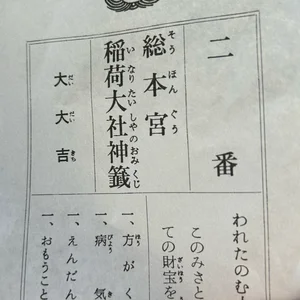 二番
そうほんぐう
総本宮
いなりたいしやのおみくじ
稲荷大社神籤
だいだいきち
大大吉
われたのむ
このみさと
ざいほう
ての財宝を
ほう
一、方がく
びょうき
一、病気
一、えんだん
一、おもうこと